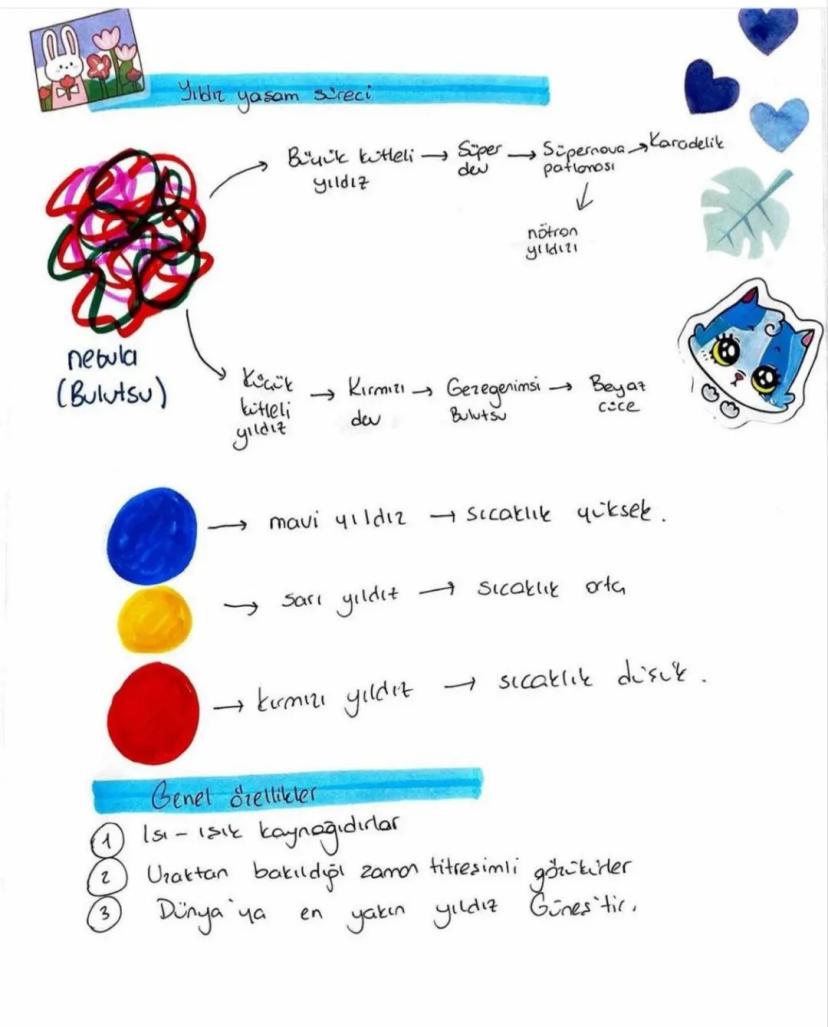 Yıldız yaşam süreci
Büyük kütleli → Süper → Süpernova → Karadelik
yıldız dev patlaması
nötron
yıldızı
nebula
(Bulutsu)
Küçük → Kırmızı → Gezegenimsi → Beyaz
kütleli dev Bulutsu cüce
yıldız
→ mavi yıldız → sıcaklık yüksek.
→ sarı yıldız → sıcaklık orta
→ kırmızı yıldız → sıcaklık düşük.
Genel özellikler
1 Isı - ışık kaynağıdırlar
2 Uzaktan bakıldığı zaman titreşimli gözükürler
3 Dünya'ya en yakın yıldız Güneş'tir.